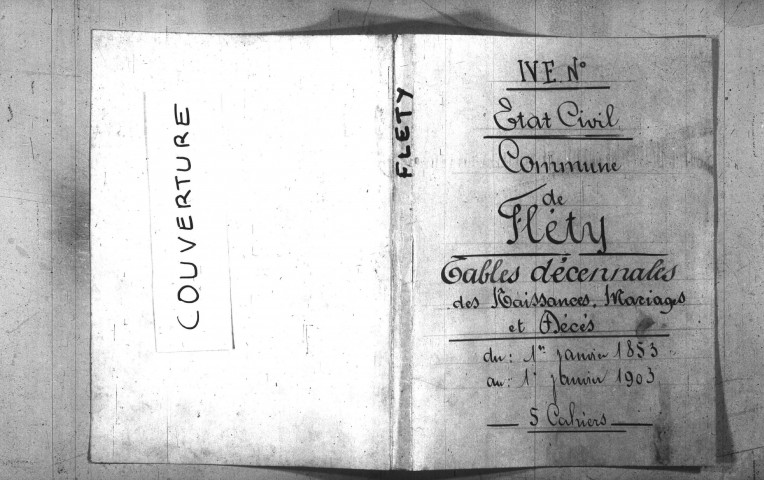 COUVERTURE
FLETY
IV E. N°
Etat Civil
Commune
de
Fléty
Tables décennales
des Naissances. Mariages
et Décés
du : 1er janvier 1853
au : 1r janvier 1903
5 Cahiers